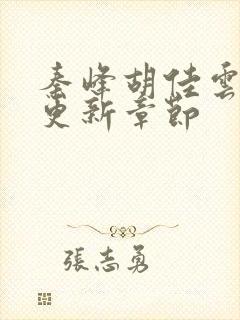 秦峰胡佳雲
更新章節
張志勇